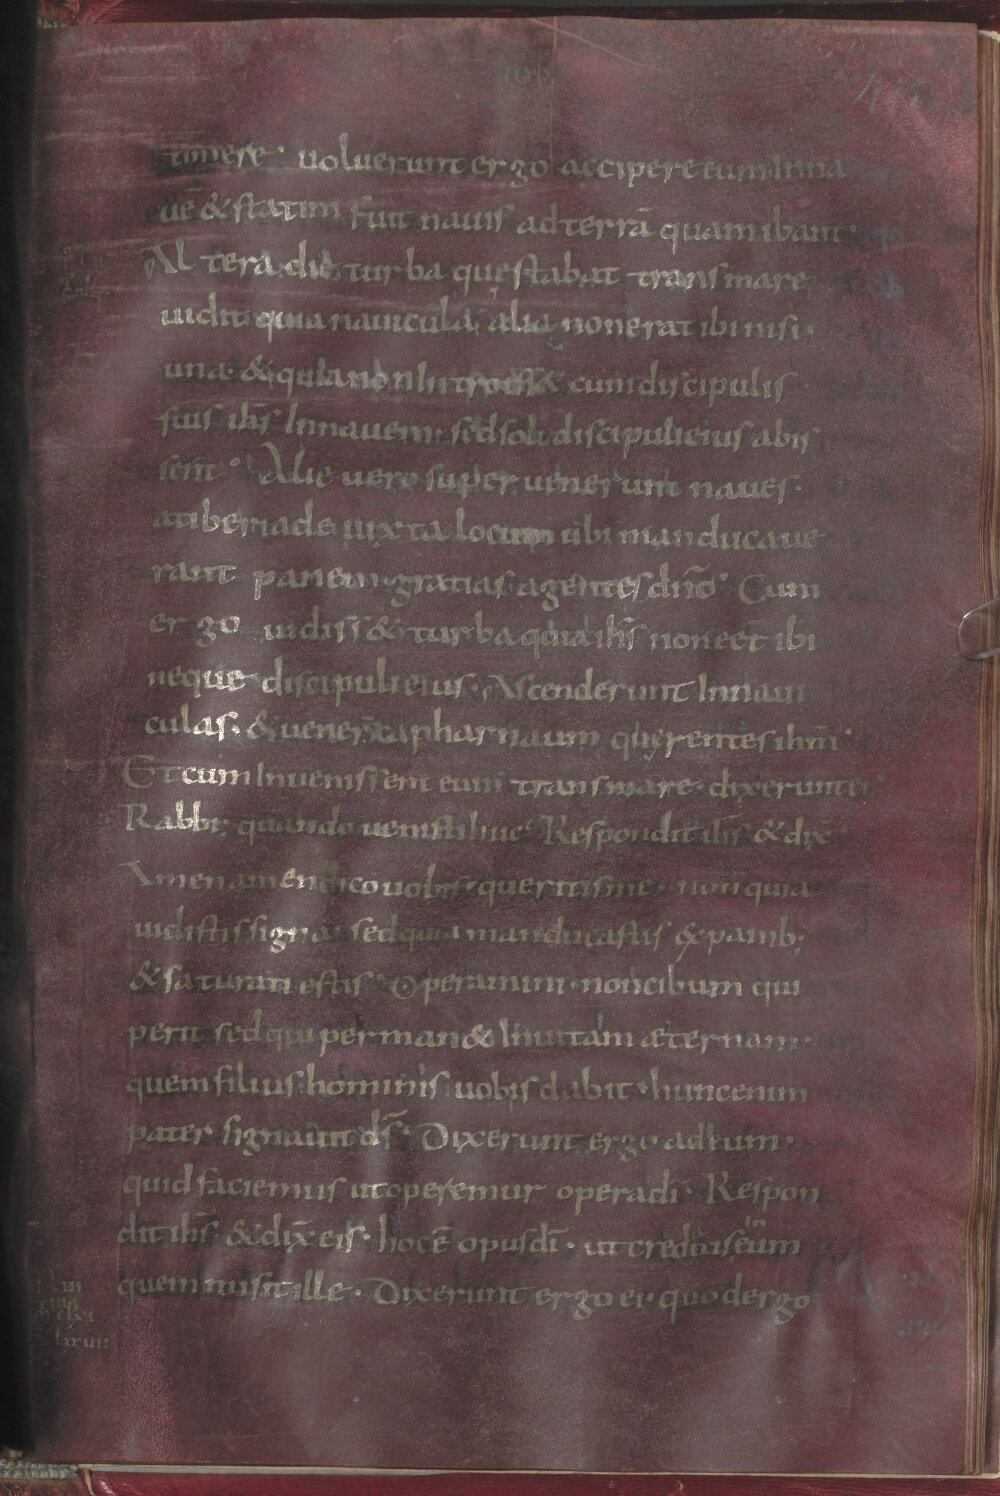 timere · uoluerunt ergo accipere eum Inna
uē & statim fuit nauis ad terrā quam ibant ·
Altera die turba que stabat trans mare
uidit quia nauicula alia non erat ibi nisi ·
una · & quia non Introiss& cum discipulis
suis ih̄s Innauem · sed soli discipuli eius abis
sent · Alie uero superuenerunt naues ·
atiberiade iuxta locum ubi manducaue
rant panem · gratias agentes dn̄o · Cum
ergo uidiss& turba quia ih̄s non eēt ibi
neque discipuli eius · Ascenderunt Innaui
culas · & uener̄ capharnaum querentes ih̄m ·
Et cum Inuenissent eum trans mare · dixerunt ei ·
Rabbi quando uenisti huc Respondit ih̄s & dix̄ ·
Amen amen dico uobis · queritis me · non quia
uidistis signa · sed quia manducastis ex panib;
& saturati estis · Operamini · non cibum qui
perit sed qui perman& Inuitam æternam ·
quem filius hominis uobis dabit · hunc enim
pater signauit d̄s · Dixerunt ergo ad eum ·
quid faciemus ut operemur opera dī · Respon
dit ih̄s · & dix̄ eis · hoc ē opus dī · ut credatis in eum
quem misit ille · Dixerunt ergo ei · quod ergo